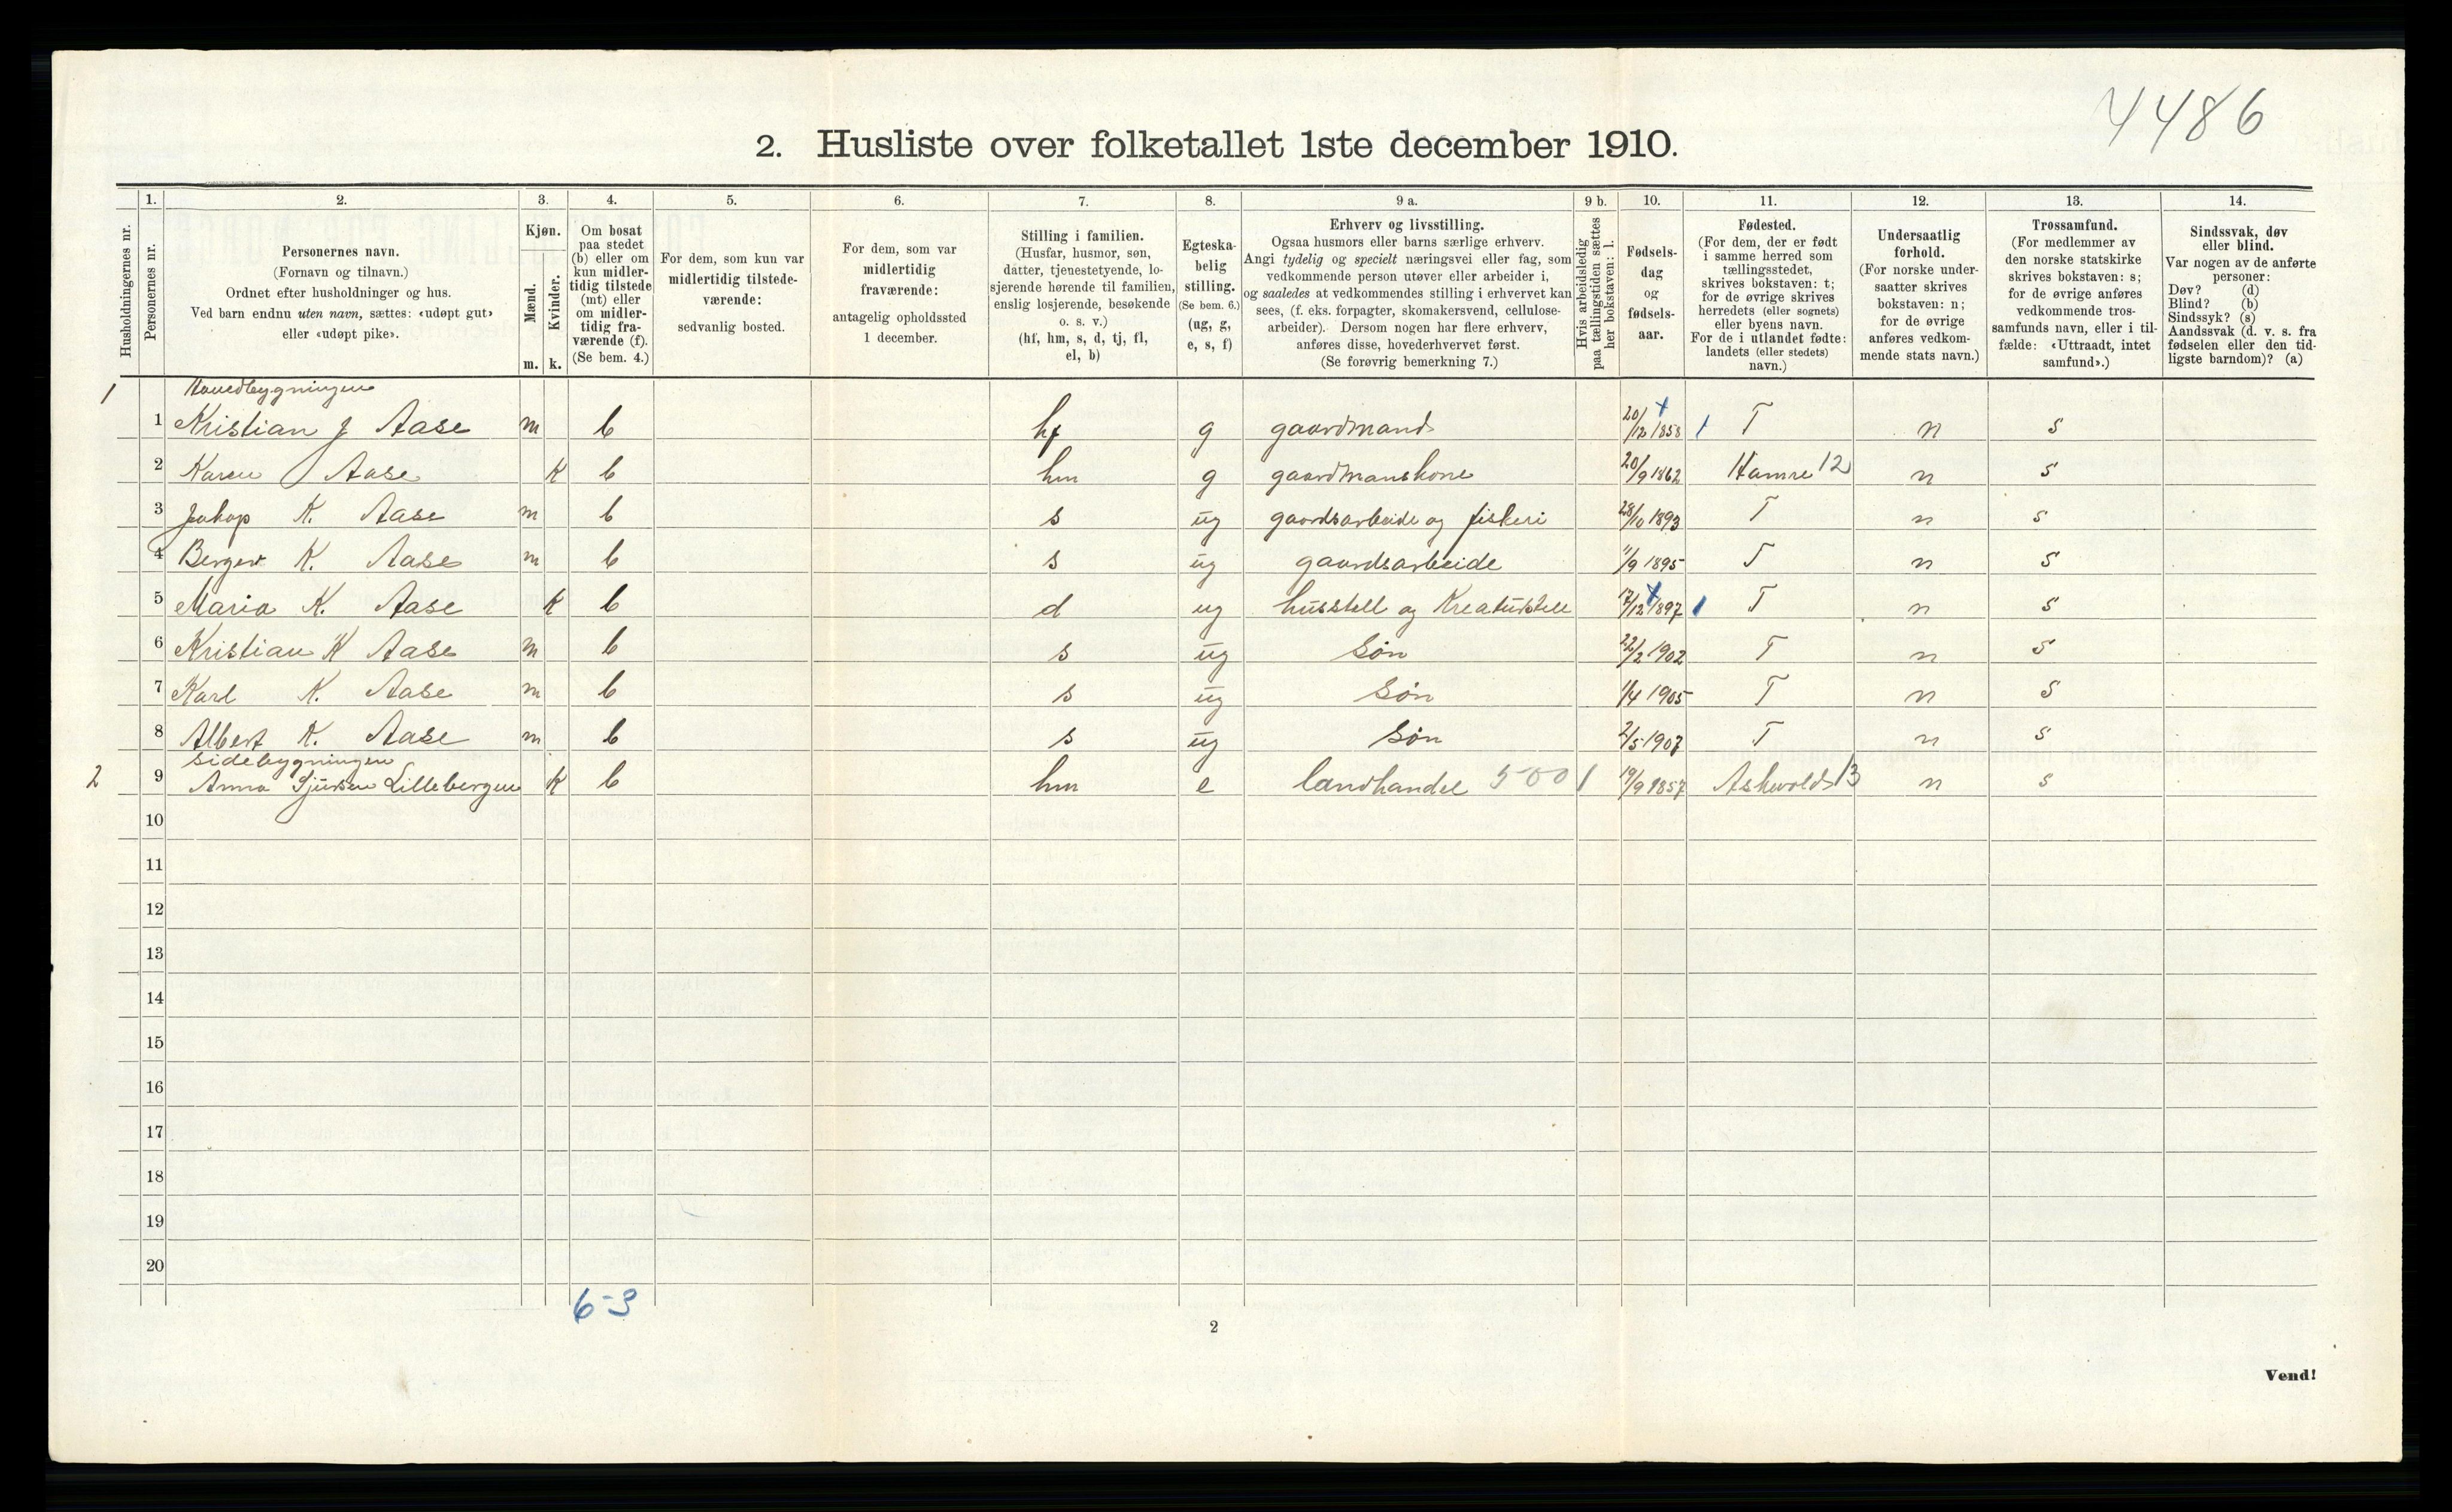 4486
2. Husliste over folketallet 1ste december 1910.
Husholdningernes nr.
1. Personernes nr.
2. Personernes navn. (Fornavn og tilnavn.) Ordnet efter husholdninger og hus. Ved barn endnu uten navn, sættes: «udøpt gut» eller «udøpt pike».
3. Kjøn. Mænd. m. Kvinder. k.
4. Om bosat paa stedet (b) eller om kun midler-tidig tilstede (mt) eller om midler-tidig fra-værende (f). (Se bem. 4.)
5. For dem, som kun var midlertidig tilstede-værende: sedvanlig bosted.
6. For dem, som var midlertidig fraværende: antagelig opholdssted 1 december.
7. Stilling i familien. (Husfar, husmor, søn, datter, tjenestetyende, lo-sjerende hørende til familien, enslig losjerende, besøkende o. s. v.) (hf, hm, s, d, tj, fl, el, b)
8. Egteska-belig stilling. (Se bem. 6.) (ug, g, e, s, f)
9 a. Erhverv og livsstilling. Ogsaa husmors eller barns særlige erhverv. Angi tydelig og specielt næringsvei eller fag, som vedkommende person utøver eller arbeider i, og saaledes at vedkommendes stilling i erhvervet kan sees, (f. eks. forpagter, skomakersvend, cellulose-arbeider). Dersom nogen har flere erhverv, anføres disse, hovederhvervet først. (Se forøvrig bemerkning 7.)
9 b. Hvis arbeidsledig paa tællingstiden sættes her bokstaven: l.
10. Fødsels-dag og fødsels-aar.
11. Fødested. (For dem, der er født i samme herred som tællingsstedet, skrives bokstaven: t; for de øvrige skrives herredets (eller sognets) eller byens navn. For de i utlandet fødte: landets (eller stedets) navn.)
12. Undersaatlig forhold. (For norske under-saatter skrives bokstaven: n; for de øvrige anføres vedkom-mende stats navn.)
13. Trossamfund. (For medlemmer av den norske statskirke skrives bokstaven: s; for de øvrige anføres vedkommende tros-samfunds navn, eller i til-fælde: «Uttraadt, intet samfund».)
14. Sindssvak, døv eller blind. Var nogen av de anførte personer: Døv? (d) Blind? (b) Sindssyk? (s) Aandssvak (d. v. s. fra fødselen eller den tid-ligste barndom)? (a)
1 Hovedbygningen
1 Kristian J Aase m b hf g gaardmand 20/12 1858 1 T n s
2 Karen Aase K b hm g gaardmanskone 20/9 1862 Hamre 12 n s
3 Jakop K. Aase m b s ug gaardsarbeide og fiskeri 28/10 1893 T n s
4 Berger K. Aase m b s ug gaardsarbeide 11/9 1895 T n s
5 Maria K. Aase K b d ug husstell og Kreaturstell 17/12 1897 1 T n s
6 Kristian K Aase m b s ug Søn 22/2 1902 T n s
7 Karl K. Aase m b s ug Søn 1/4 1905 T n s
8 Albert K. Aase m b s ug Søn 2/5 1907 T n s
Sidebygningen
2 9 Anna Sjursen Lillebergen K b hm e landhandel 500 1 19/9 1857 Askvold 13 n s
10
11
12
13
14
15
16
17
18
19
20
6-3
2
Vend!